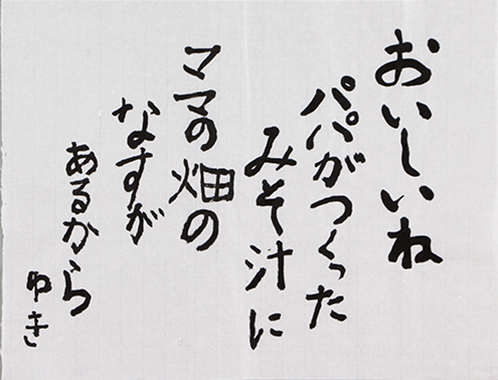 おいしいね
パパがつくった
みそ汁に
ママの畑の
なすが
あるから
ゆき